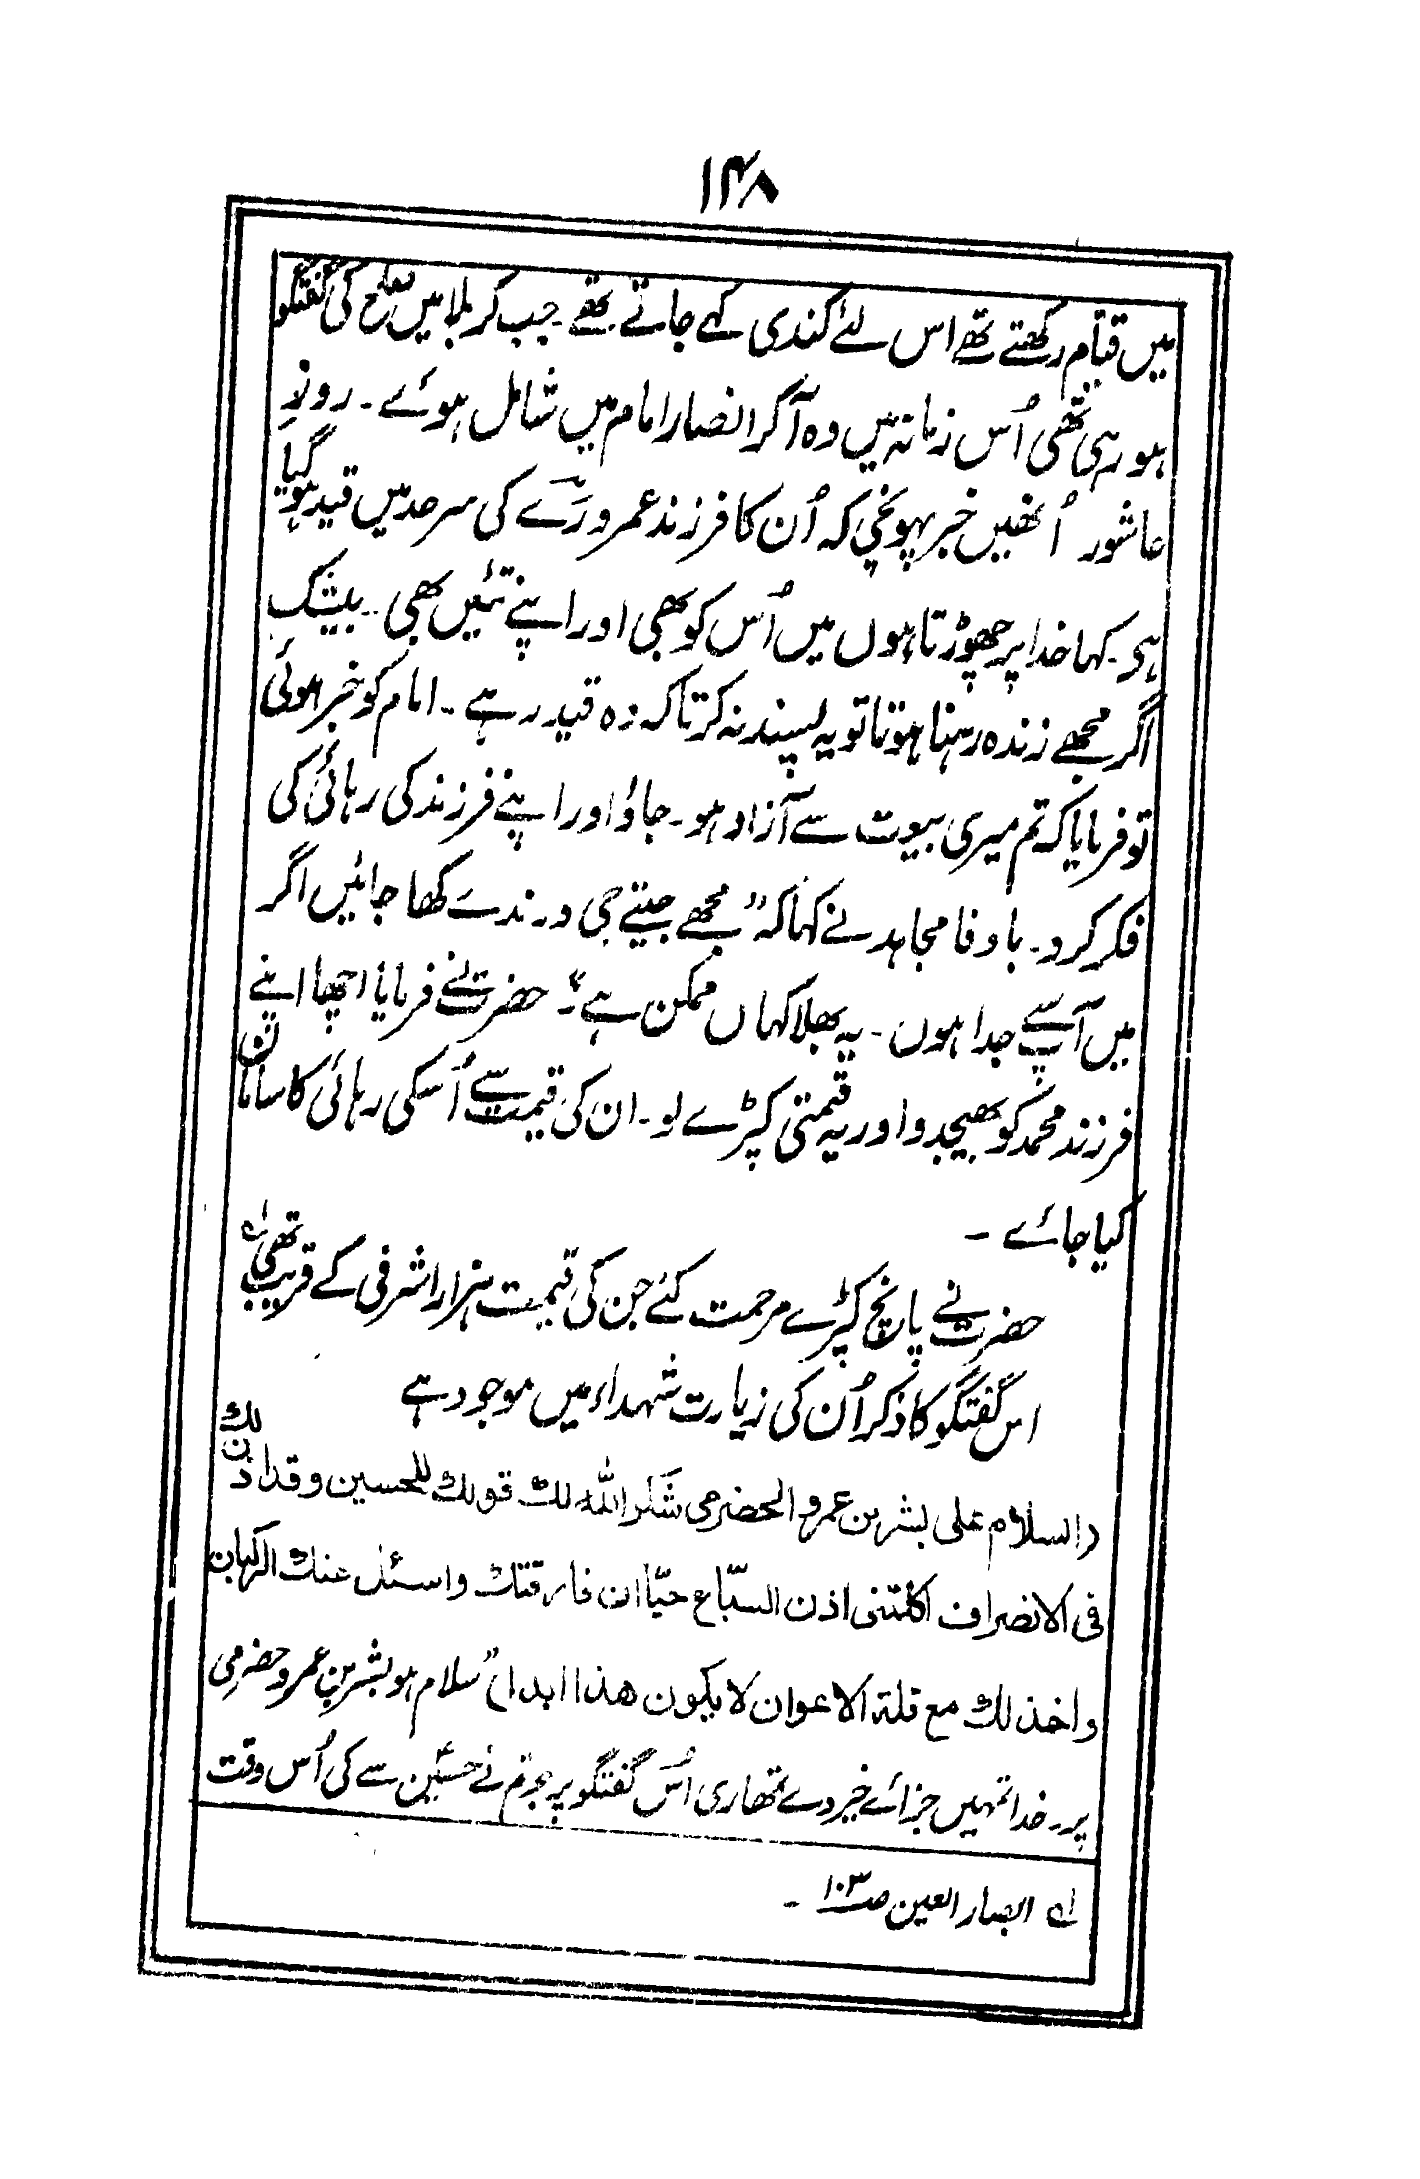 ۱۴۸
میں قیام رکھتے تھے اس لئے کندی کہے جاتے تھے۔ جب کربلا میں صلح کی گفتگو
ہو رہی تھی اُس زمانہ میں وہ آ کر انصار امام میں شامل ہوئے۔ روزِ
عاشور اُنھیں خبر پہونچی کہ اُن کا فرزند عمرو رَے کی سرحد میں قید ہو گیا
ہے۔ کہا خدا پر چھوڑتا ہوں میں اُس کو بھی اور اپنے تئیں بھی۔ بیشک
اگر مجھے زندہ رہنا ہوتا تو یہ پسند نہ کرتا کہ وہ قید رہے۔ امام کو خبر ہوئی
تو فرمایا کہ تم میری بیعت سے آزاد ہو۔ جاؤ اور اپنے فرزند کی رہائی کی
فکر کرو۔ باوفا مجاہد نے کہا کہ " مجھے جیتے جی درندے کھا جائیں اگر
میں آپ سے جدا ہوں۔ یہ بھلا کہاں ممکن ہے"۔ حضرت نے فرمایا اچھا اپنے
فرزند محمد کو بھیجدو اور یہ قیمتی کپڑے لو۔ ان کی قیمت سے اُسکی رہائی کا سامان
کیا جائے ۔
حضرت نے پانچ کپڑے مرحمت کئے جن کی قیمت ہزار اشرفی کے قریب تھی ۱؎
اس گفتگو کا ذکر اُن کی زیارت شہداء میں موجود ہے
(السلام علی بشر بن عمرو الحضرمی شکر اللہ لک قولک للحسین وقد اذن لک
فی الانصراف اکلتنی اذن السبّاع حیّا ان فارقتک واسئل عنک الرکبان
واخذلک مع قلة الاعوان لا یکون ھذا ابدا) "سلام ہو بشر بن عمرو حضرمی
پر۔ خدا تمہیں جزائے خیر دے تمھاری اُس گفتگو پر جو تم نے حسینؑ سے کی اُس وقت
۱؎ ابصار العین ص۱۰۳ ۔